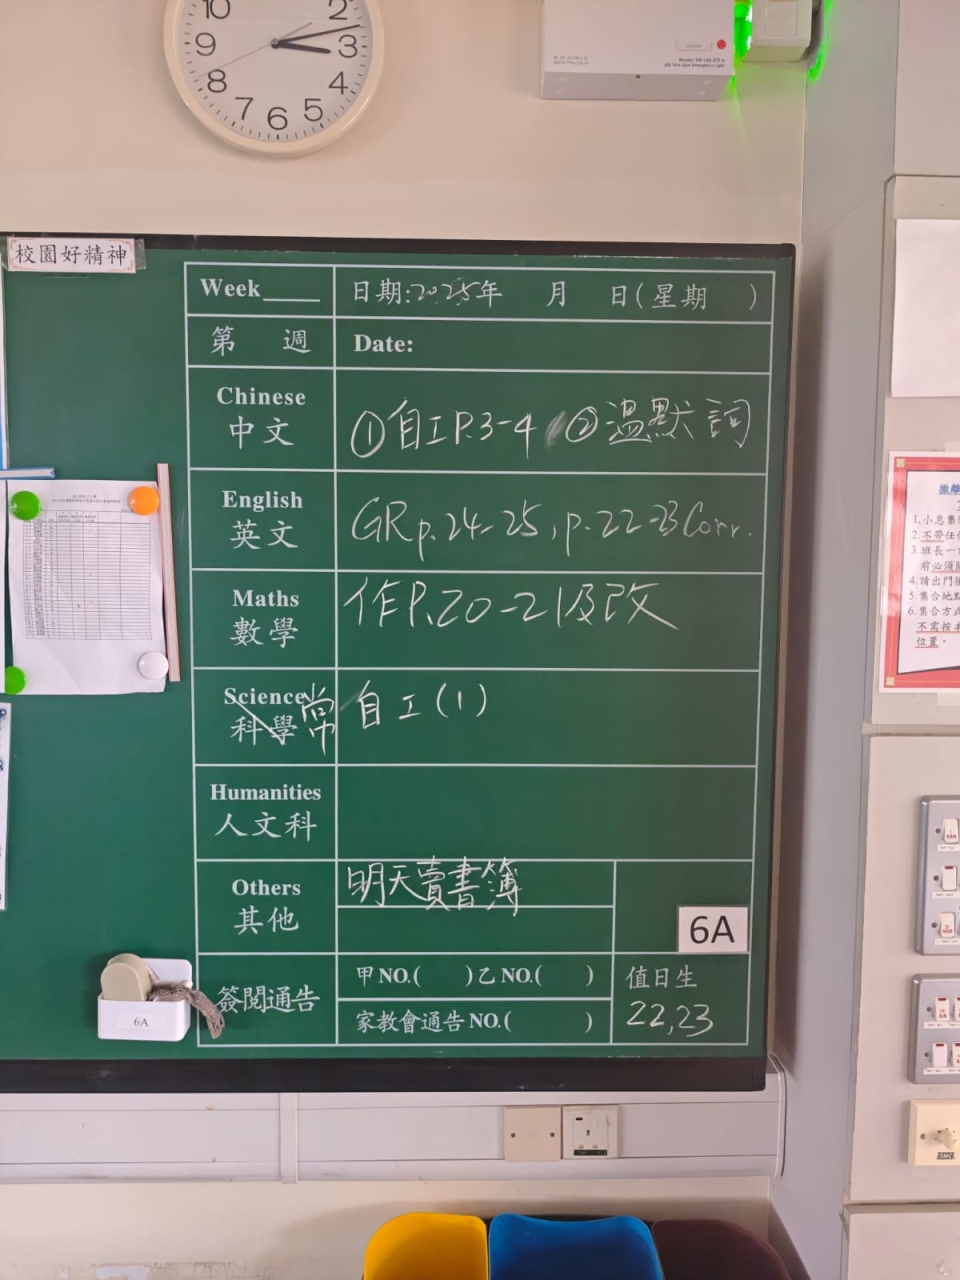 10
2
9
3
8
4
7
6
5
校園好精神
Week____ 日期:2025年 月 日(星期 )
第 週 Date:
Chinese
中文
①自工P.3-4 ②溫默詞
English
英文
GR p.24-25, p.22-23 Corr.
Maths
數學
作P.20-21及改
Science
科學
常
自工(1)
Humanities
人文科
Others
其他
明天賣書簿
6A
簽閱通告
甲NO.( )乙NO.( )
家教會通告NO.( )
值日生
22,23
6A
1.小息集
2.不帶任
3.班長一
前必須
4.請出門
5.集合地點
6.集合方式
不需按
位置。